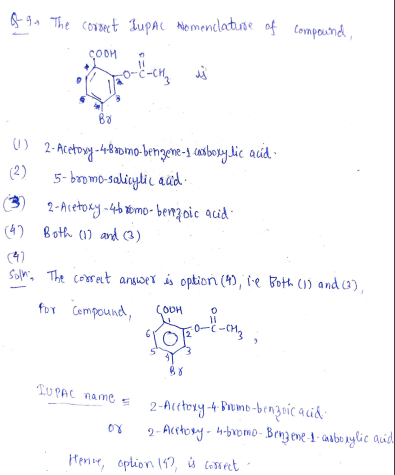 Q-9. The correct IUPAC Nomenclature of compound,
COOH
O
O-C-CH3 is
Br
(1) 2-Acetoxy-4-Bromo-benzene-1 carboxylic acid.
(2) 5-bromo-salicylic acid.
(3) 2-Acetoxy-4bromo-benzoic acid.
(4) Both (1) and (3)
(4)
Soln. The correct answer is option (4), i.e Both (1) and (3),
For Compound,
COOH
O
6 1 2 O-C-CH3,
5 4 3
Br
IUPAC name = 2-Acetoxy-4-Bromo-benzoic acid.
or 2-Acetoxy-4-bromo-Benzene-1-carboxylic acid
Hence, option (4), is correct.